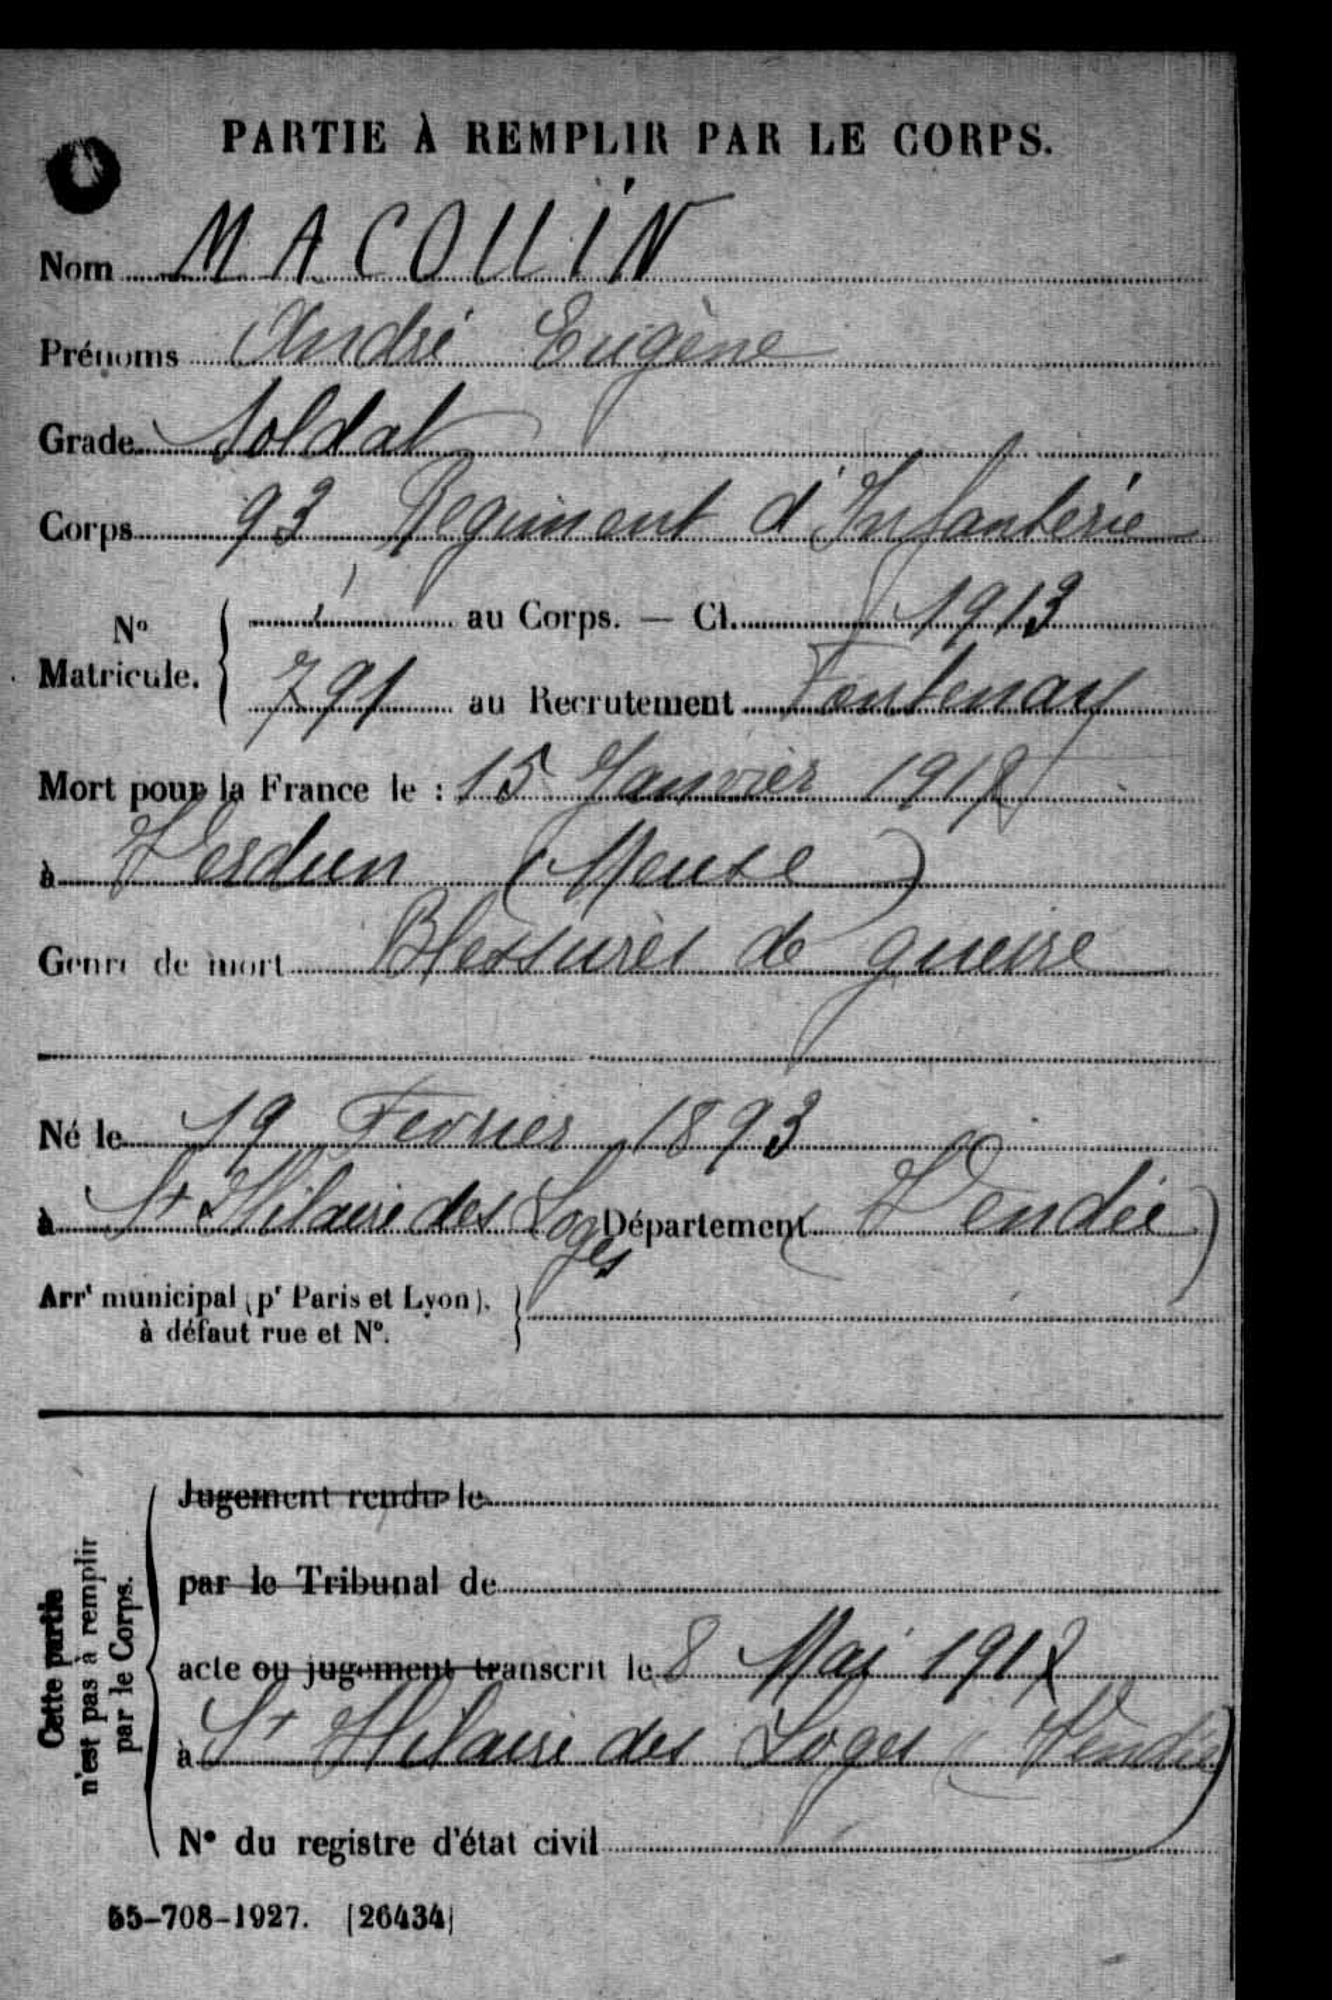 PARTIE À REMPLIR PAR LE CORPS.
Nom MACOUIN
Prénoms André Eugène
Grade Soldat
Corps 93 Régiment d'Infanterie
Nº Matricule. au Corps. — Cl. 1913
791 au Recrutement Fontenay
Mort pour la France le : 15 Janvier 1917
à Verdun (Meuse)
Genre de mort Blessures de guerre
Né le 19 Fevrier 1893
à St Hilaire des Loges Département (Vendée)
Arrt municipal (pr Paris et Lyon),
à défaut rue et Nº.
Cette partie
n'est pas à remplir
par le Corps.
Jugement rendu le
par le Tribunal de
acte ou jugement transcrit le 8 Mai 1917
à St Hilaire des Loges (Vendée)
Nº du registre d'état civil
55-708-1927. [26434]